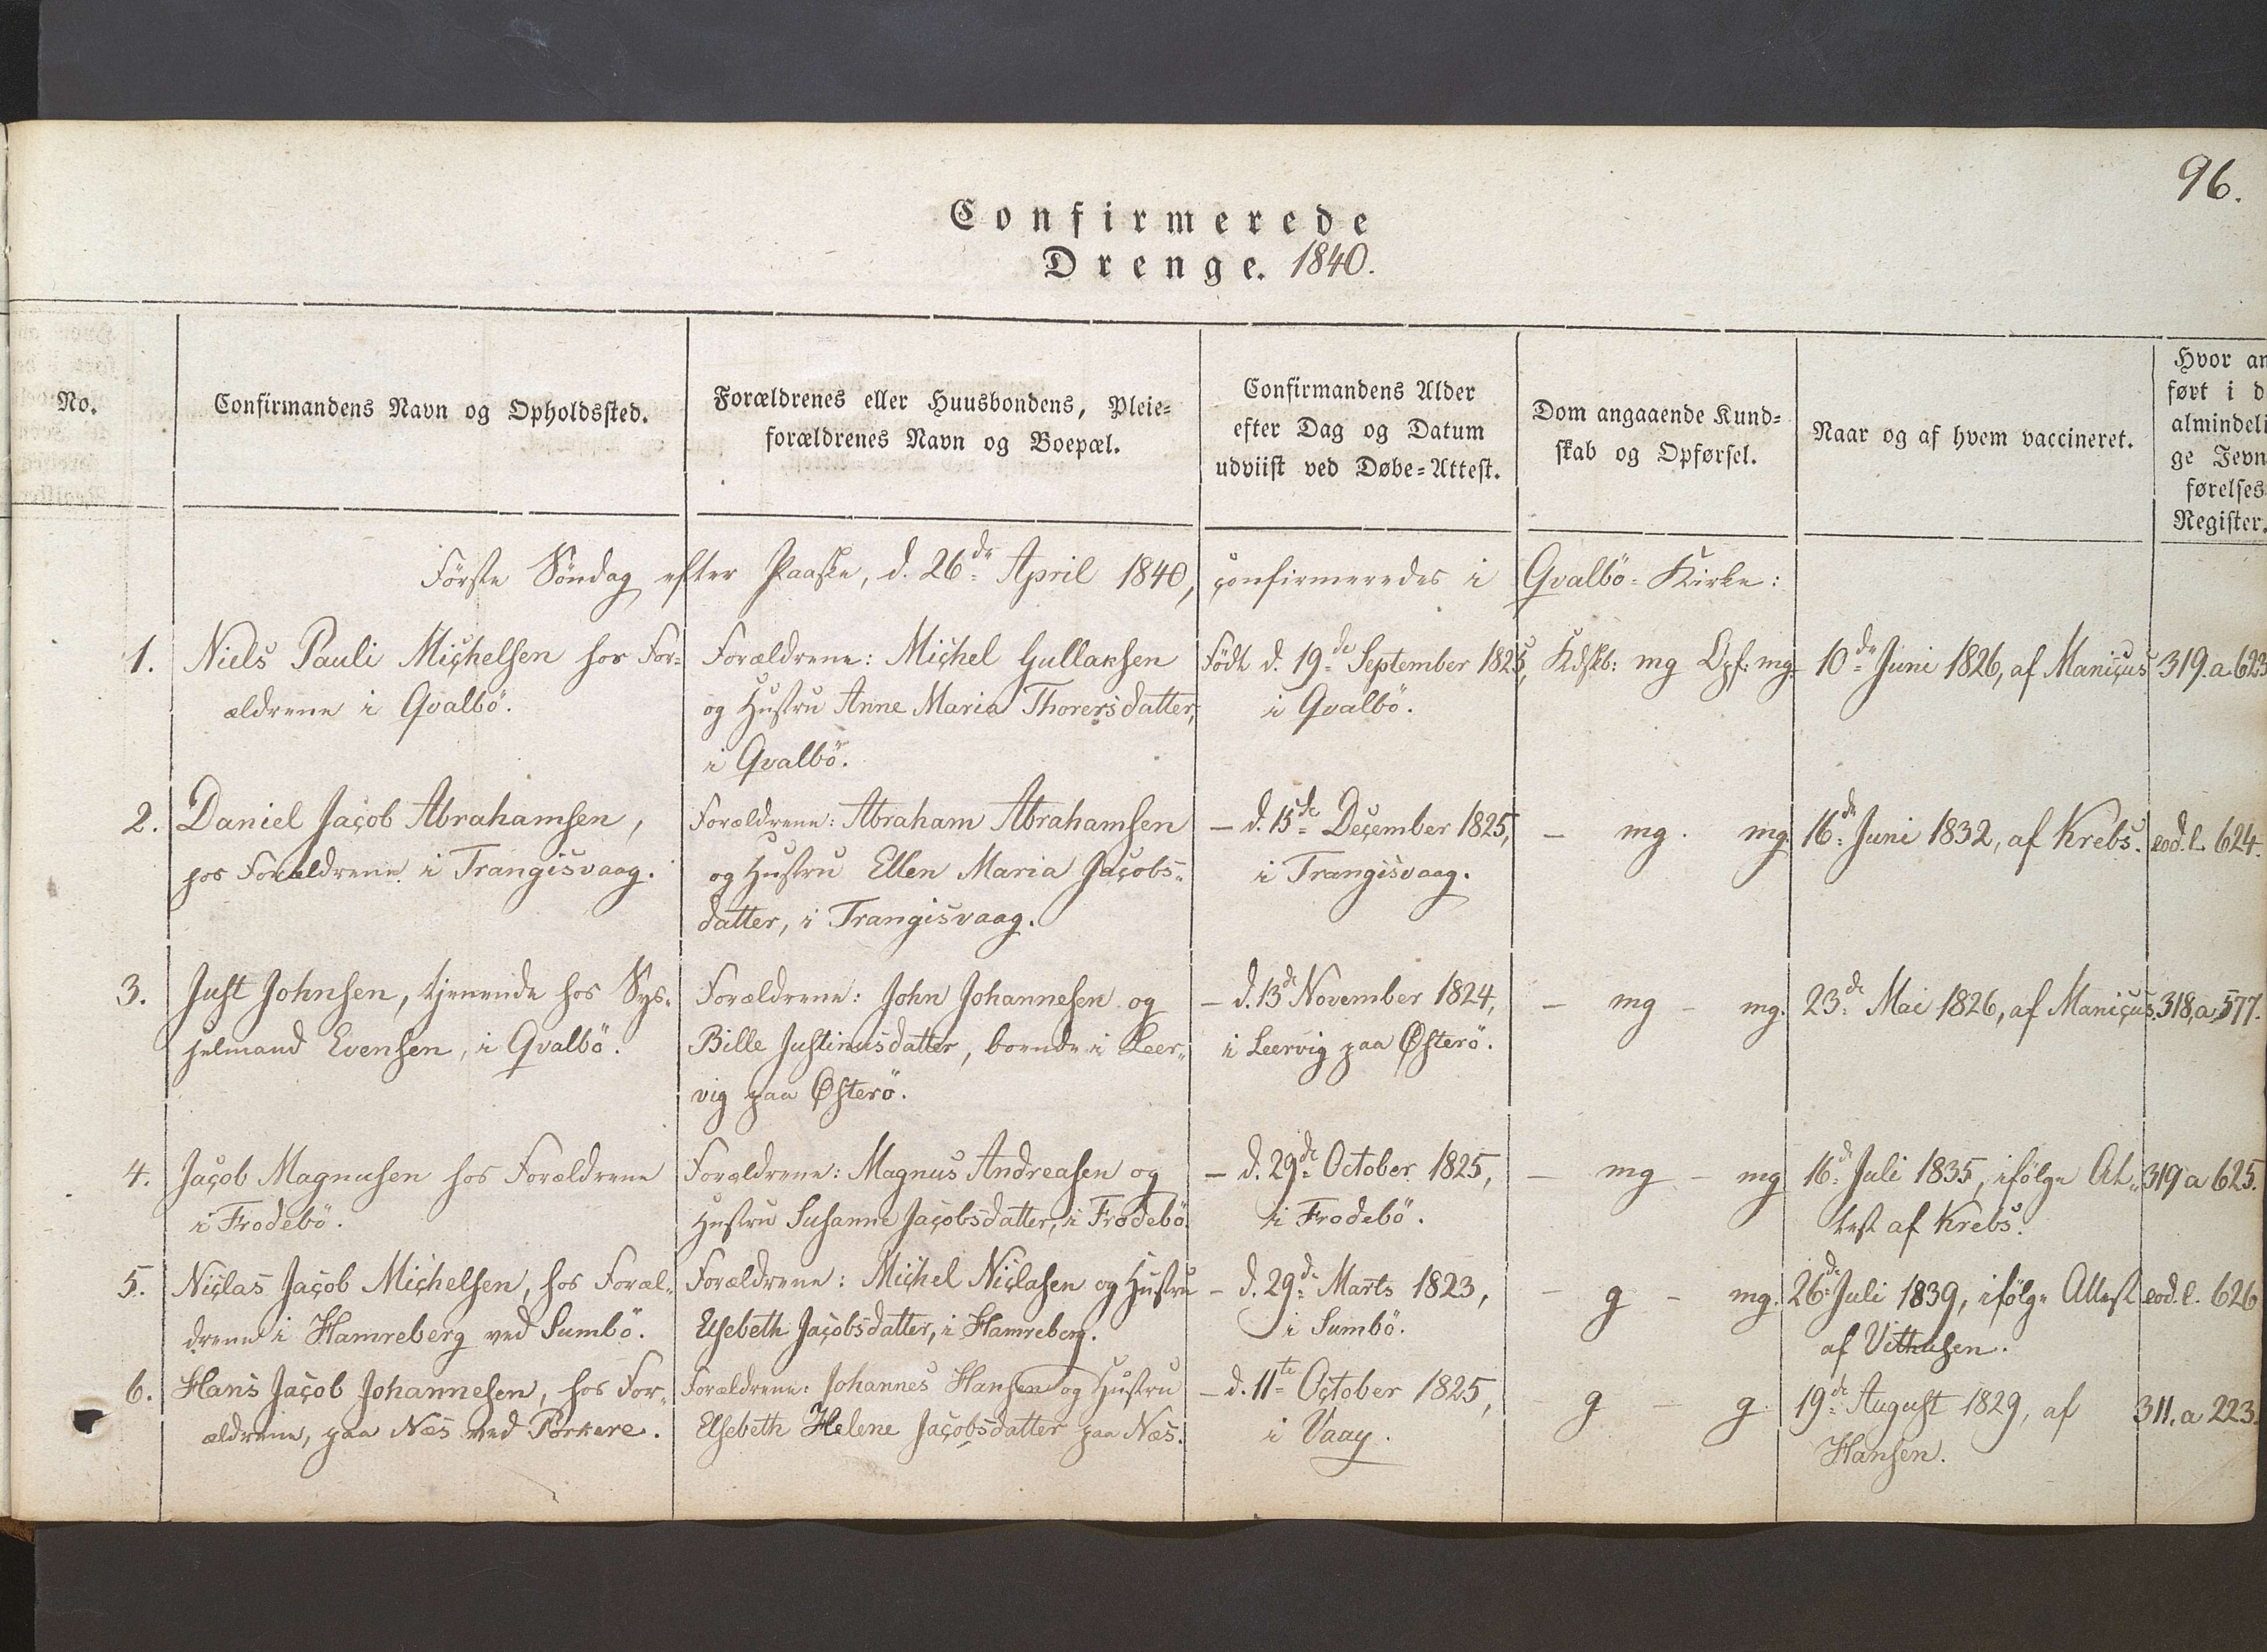 96.
Confirmerede
Drenge. 1840.
No.
Confirmandens Navn og Opholdssted.
Forældrenes eller Huusbondens, Pleie=
forældrenes Navn og Boepæl.
Confirmandens Alder
efter Dag og Datum
udviist ved Døbe=Attest.
Dom angaaende Kund=
skab og Opførsel.
Naar og af hvem vaccineret.
Hvor an
ført i d
almindeli
ge Jevn
førelses
Register.
Förste Söndag efter Paaske, d. 26de April 1840, confirmeredes i Qvalbö=Kirke:
1.
Niels Pauli Michelsen hos For=
ældrene i Qvalbö.
Forældrene: Michel Gullaksen
og Hustru Anne Maria Thorersdatter,
i Qvalbö.
Födt d. 19de September 1825,
i Qvalbö.
Kdskb: mg Opf: mg.
10de Juni 1826, af Manicus
319. a 623
2.
Daniel Jacob Abrahamsen,
hos Forældrene i Trangisvaag.
Forældrene: Abraham Abrahamsen
og Hustru Ellen Maria Jacobs=
datter, i Trangisvaag.
— d. 15de December 1825,
i Trangisvaag.
— mg. mg.
16de Juni 1832, af Krebs.
eod. l. 624.
3.
Just Johnsen, tjenende hos Sys=
selmand Evensen, i Qvalbö.
Forældrene: John Johannesen og
Bille Justinusdatter, boende i Leer=
vig paa Østerö.
— d. 13de November 1824,
i Leervig paa Østerö.
— mg — mg.
23de Mai 1826, af Manicus.
318, a, 577.
4.
Jacob Magnusen hos Forældrene
i Frodebö.
Forældrene: Magnus Andreasen og
Hustru Susanne Jacobsdatter, i Frodebö.
— d. 29de October 1825,
i Frodebö.
— mg — mg
16de Juli 1835, ifölge At=
test af Krebs.
319 a 625.
5.
Niclas Jacob Michelsen, hos Foræl=
drene i Hamreberg ved Sumbö.
Forældrene: Michel Niclasen og Hustru
Elsebeth Jacobsdatter, i Hamreberg.
— d. 29de Marts 1823,
i Sumbö.
— g — mg.
26de Juli 1839, ifölge Attest
af
eod. l. 626
6.
Hans Jacob Johannesen, hos For=
ældrene, paa Næs ved Porkere.
Forældrene: Johannes Hansen og Hustru
Elsebeth Helene Jacobsdatter paa Næs.
— d. 11te October 1825,
i Vaag.
g — g.
19de August 1829, af
Hansen.
311. a 223.